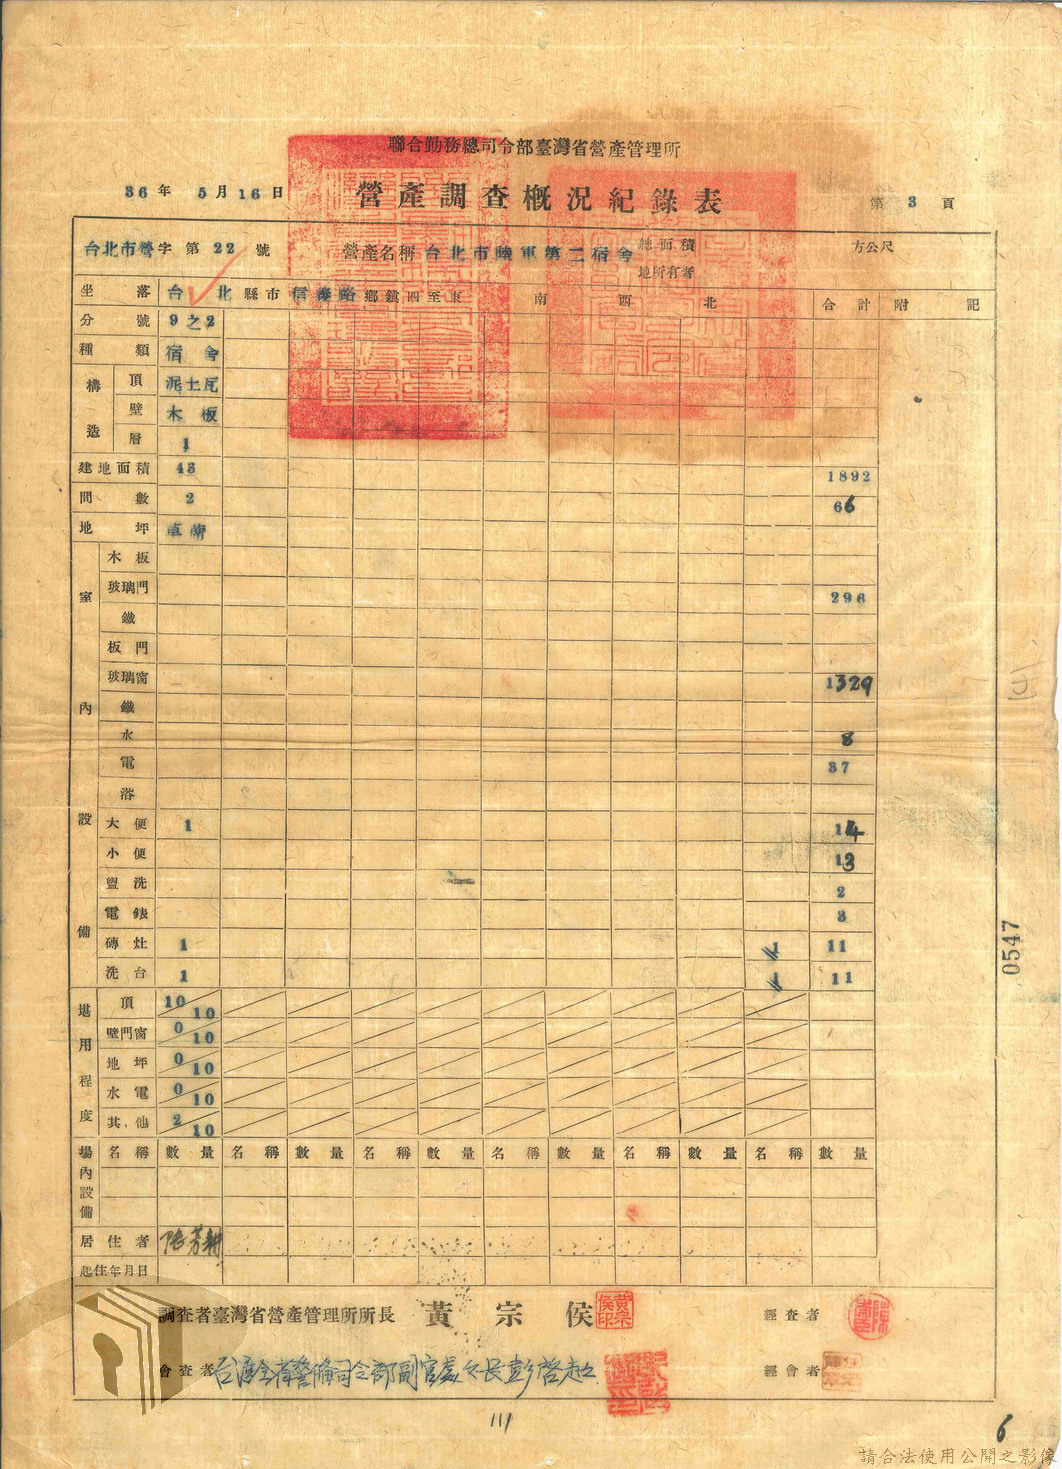 聯合勤務總司令部臺灣省營產管理所
36年 5月16日 營產調查概況紀錄表 第 3 頁
台北市營字 第 22 號 營產名稱 台北市陸軍第二宿舍 總面積 方公尺
地所有者
坐落 台北縣市 信義路 鄉鎮四至東 南 西 北 合計 附記
分號 9之2
種類 宿舍
構造 頂 泥土瓦
壁 木板
層 1
建地面積 43 1892
間數 2 66
地坪
室內設備 木板
玻璃門 296
鐵
板門
玻璃窗 1329
鐵
水 8
電 37
浴
大便 1 14
小便 13
盥洗 2
電錶 3
磚灶 1 1 11
洗台 1 1 11
堪用程度 頂 10/10
壁門窗 0/10
地坪 0/10
水電 0/10
其他 2/10
場內設備 名稱 數量 名稱 數量 名稱 數量 名稱 數量 名稱 數量 名稱 數量
居住者 張芳耕
起住年月日
調查者臺灣省營產管理所所長 黃宗侯 黃宗侯印 經查者
會查者 台灣全省警備司令部副官處處長彭啓超 經會者
111
6
0547
請合法使用公開之影像